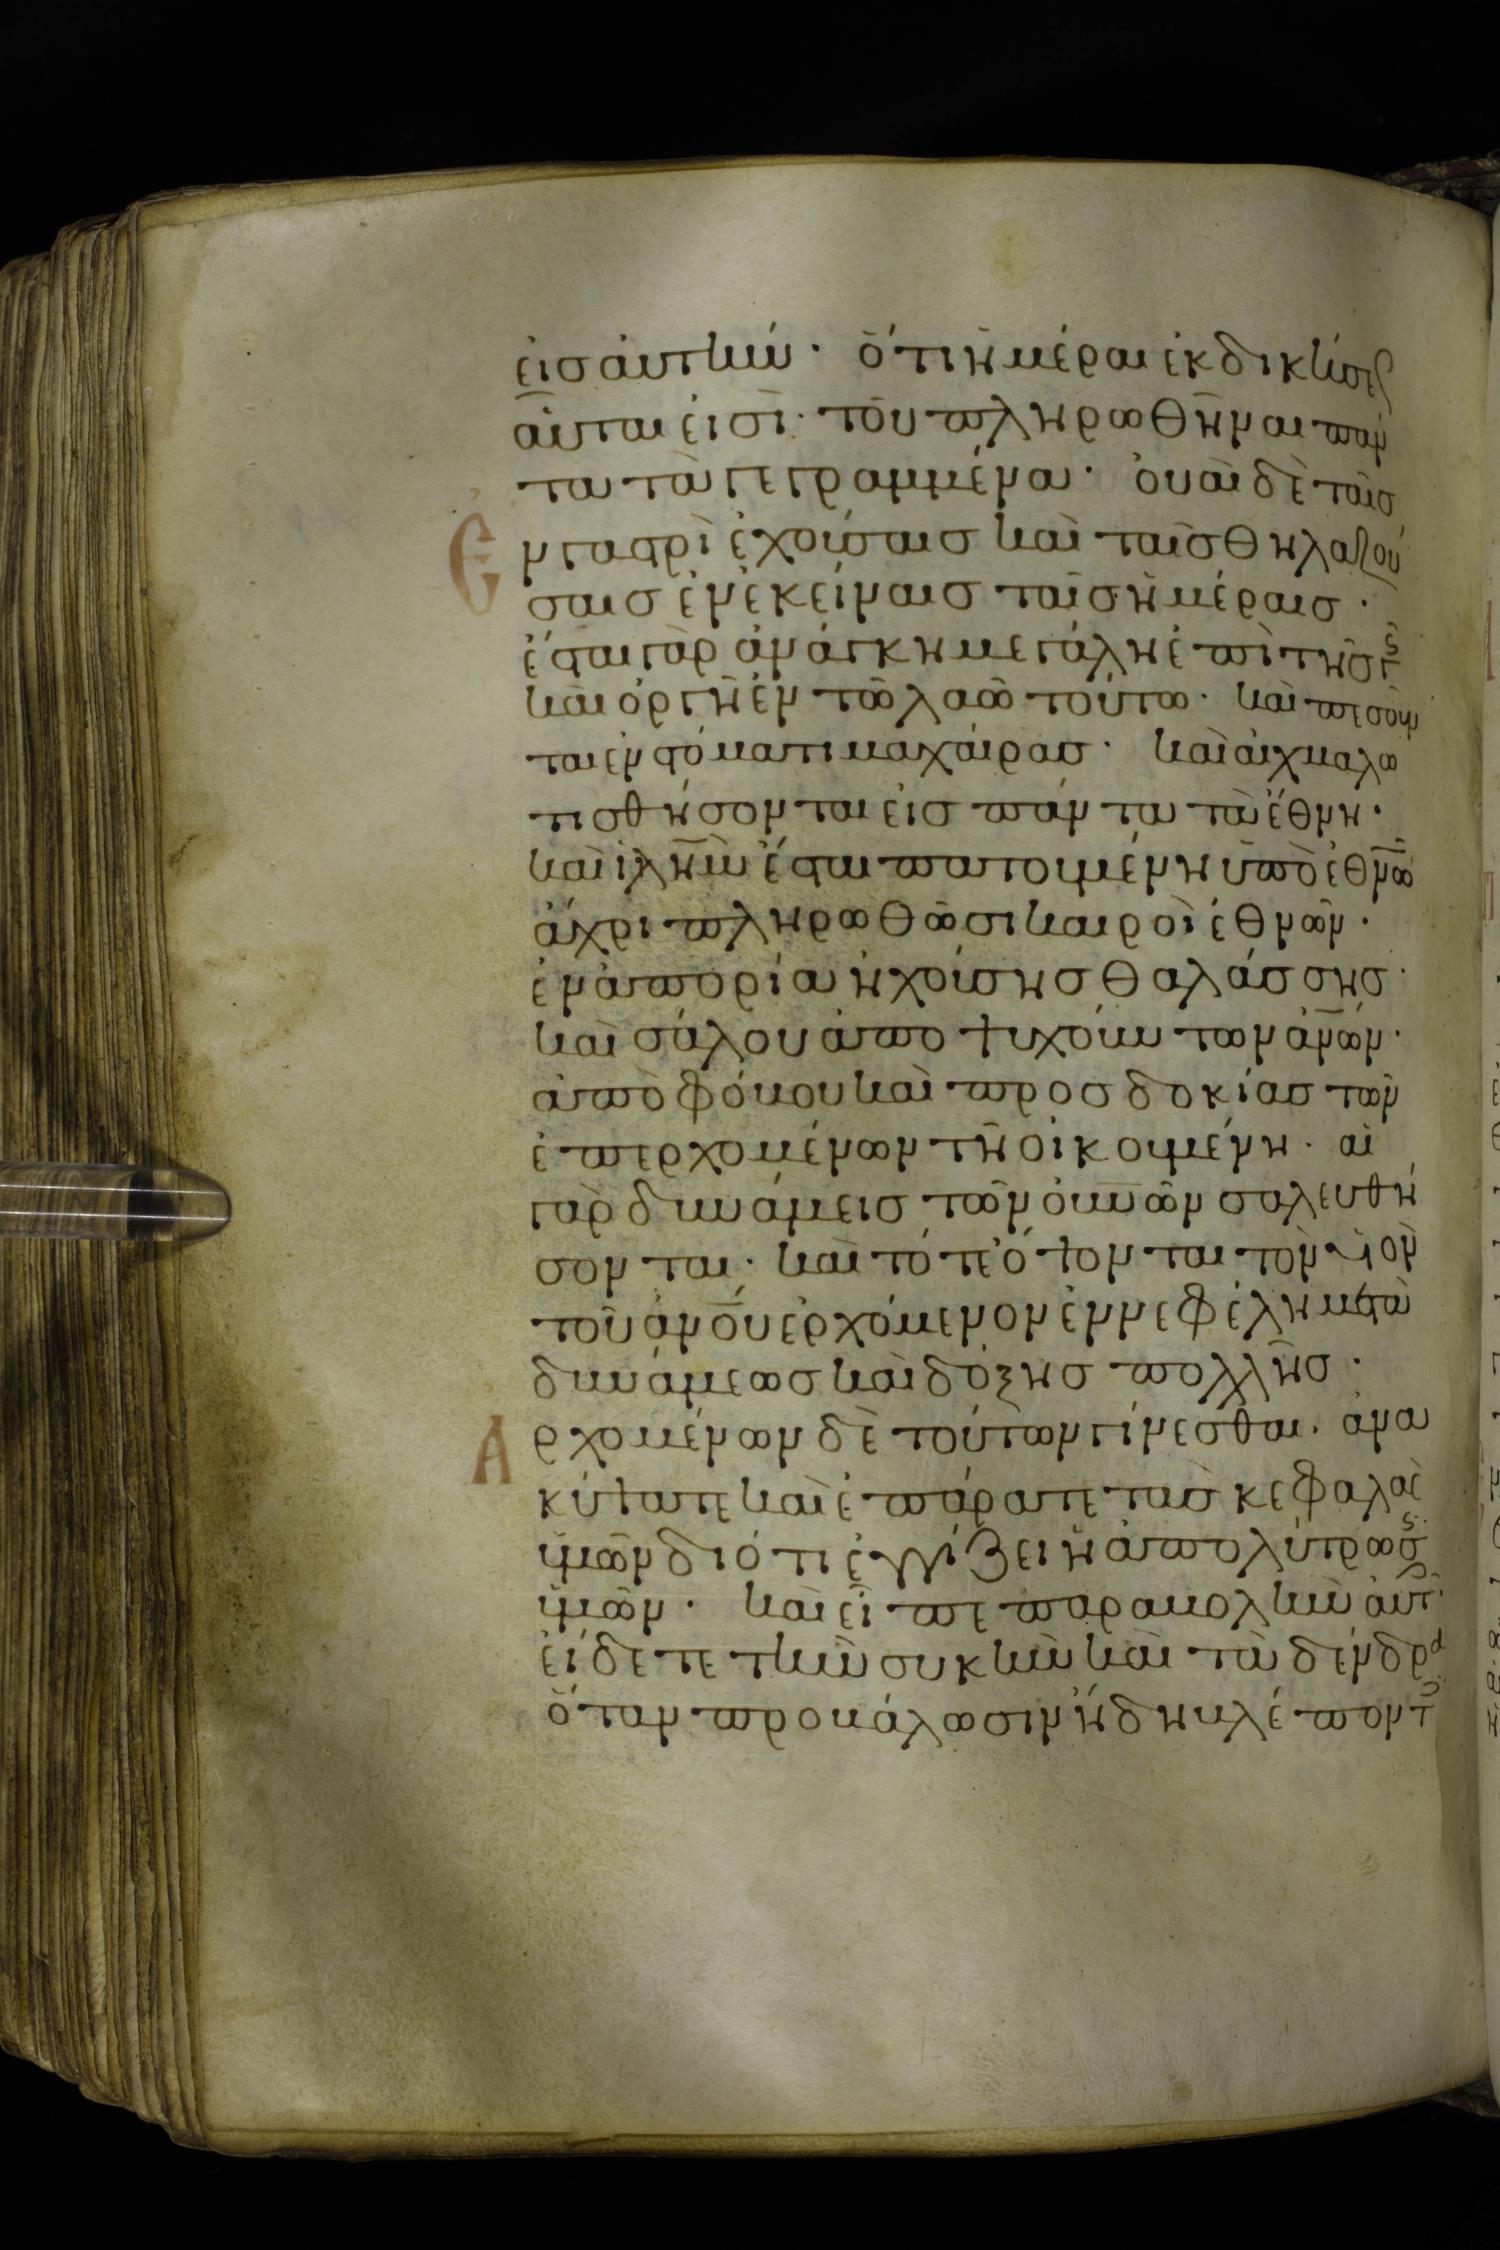 εισ αυτήν· ὅτι ἡμέραι ἐκδικήσεως
αὗταί εἰσὶ· τοῦ πληρωθῆναι πάν
τα τὰ γεγραμμένα· οὐαὶ δὲ ταῖσ
Ἐν γαστρὶ ἐχούσαισ καὶ ταῖσ θηλαζού
σαισ ἐν ἐκείναισ ταῖσ ἡμέραισ·
ἔσται γὰρ ἀνάγκη μεγάλη ἐπὶ τῆσ γῆς
καὶ ὀργὴ ἐν τῶ λαῶ τούτω· καὶ πεσοῦν
ται ἐν στόματι μαχαίρασ· καὶ αἰχμαλω
τισθήσονται εἰσ πάντα τὰ ἔθνη·
καὶ ἰλὴμ ἔσται πατουμένη ὑπὸ ἐθνῶν
ἄχρι πληρωθῶσι καιροὶ ἐθνῶν·
ἐν ἀπορία ἠχούσησ θαλάσσησ·
καὶ σάλου ἀποψυχόντων ἀνων·
ἀπὸ φόβου καὶ προσδοκίασ τῶν
ἐπερχομένων τῆ οἰκουμένη· αἱ
γὰρ δυνάμεισ τῶν οὐνῶν σαλευθή
σονται· καὶ τότε ὄψονται τὸν υἱὸν
τοῦ ἀνου ἐρχόμενον ἐν νεφέλη μετὰ
δυνάμεωσ καὶ δόξησ πολλῆσ·
Ἀρχομένων δὲ τούτων γίνεσθαι· ἀνα
κύψατε καὶ ἐπάρατε τὰσ κεφαλὰς
ὑμῶν διότι ἐγγίζει ἡ ἀπολύτρωσις
ὑμῶν· καὶ εἶπε παραβολὴν αὐτοῖς·
ἴδετε τὴν συκῆν καὶ τὰ δένδρα
ὅταν προβάλωσιν ἤδη βλέποντες